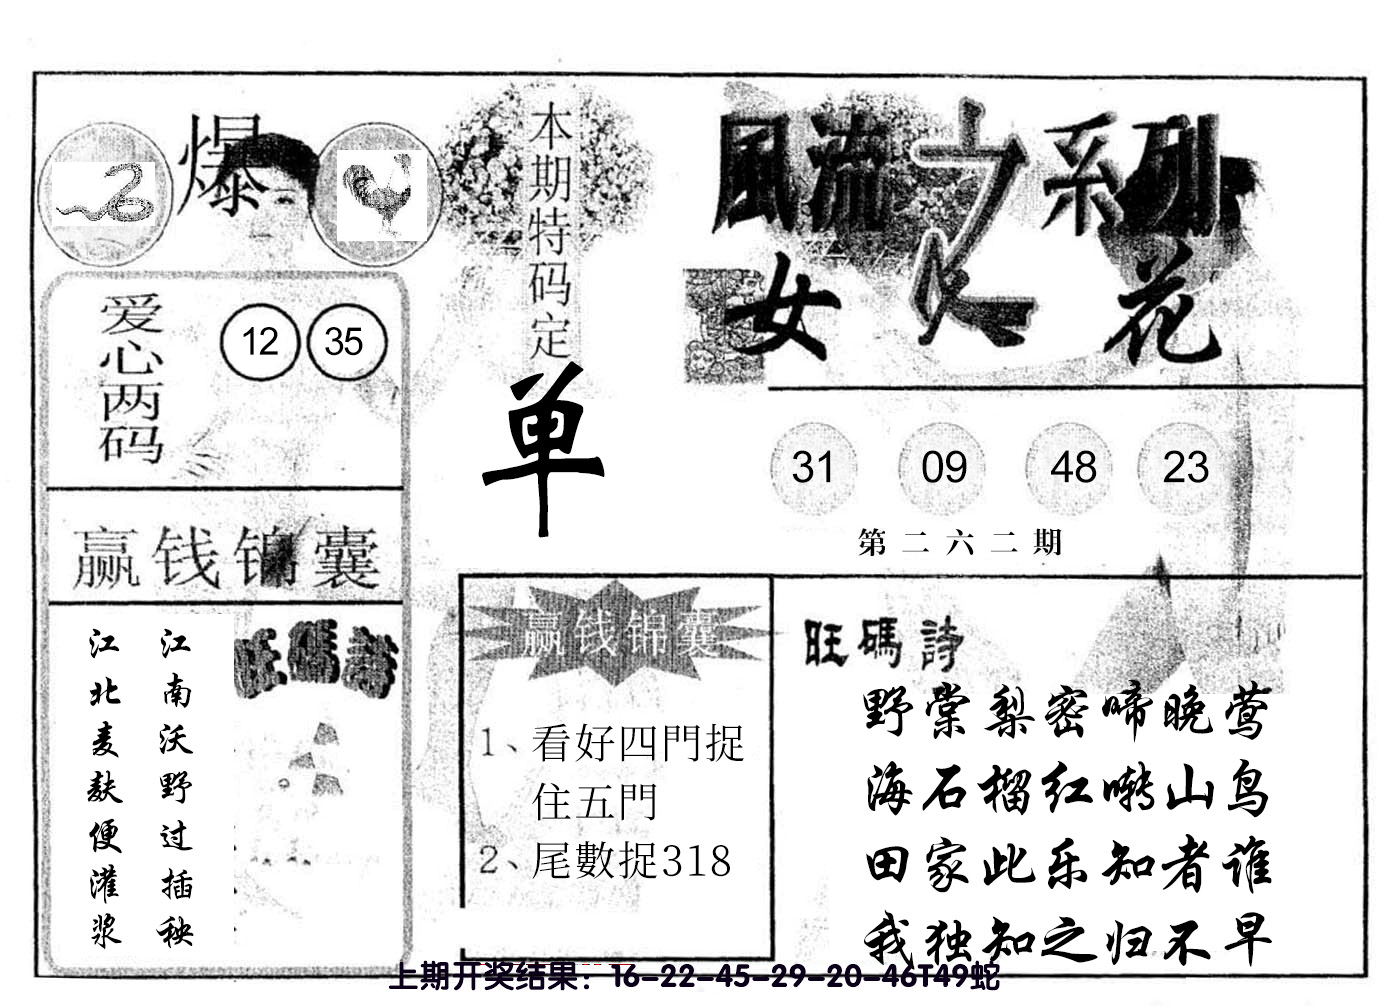 爆
本期特码定
单
風流之系列
女人花
爱心两码
12 35
31 09 48 23
第二六二期
赢钱锦囊
江南沃野过插秧
江北麦麸便灌浆
旺碼詩
赢钱锦囊
1、看好四門捉
住五門
2、尾數捉318
旺碼詩
野棠梨密啼晚莺
海石榴红啭山鸟
田家此乐知者谁
我独知之归不早
上期开奖结果：16-22-45-29-20-46T49蛇